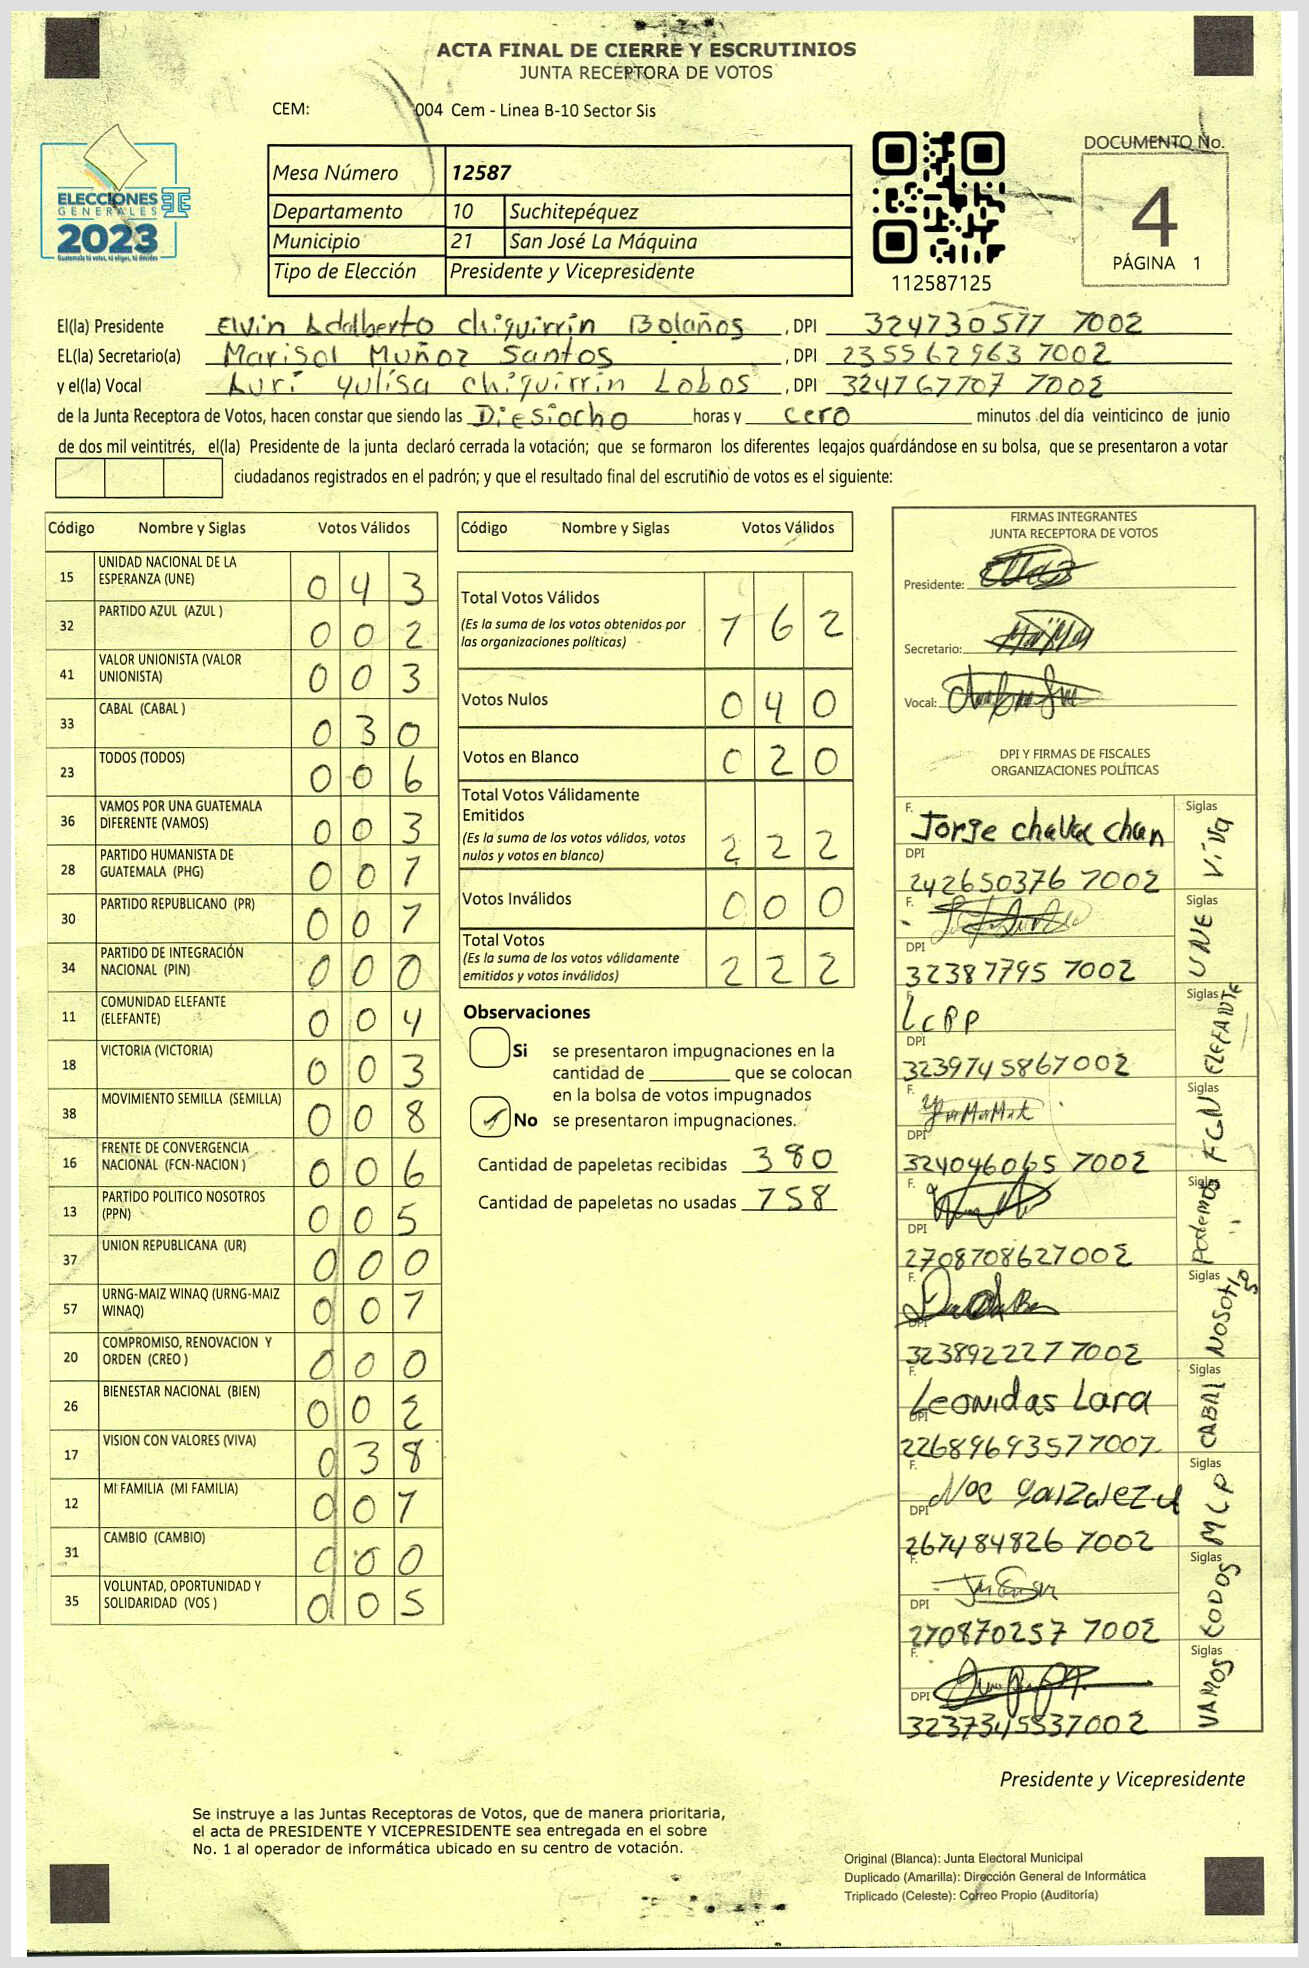 ACTA FINAL DE CIERRE Y ESCRUTINIOS
JUNTA RECEPTORA DE VOTOS
CEM: 004 Cem - Linea B-10 Sector Sis
ELECCIONES
GENERALES
2023
Guatemala tú votas, tú eliges, tú decides
Mesa Número 12587
Departamento 10 Suchitepéquez
Municipio 21 San José La Máquina
Tipo de Elección Presidente y Vicepresidente
112587125
DOCUMENTO No.
4
PÁGINA 1
El(la) Presidente Elvin Adalberto chiquirrin Bolaños, DPI 324730577 7002
EL(la) Secretario(a) Marisol Muñoz Santos, DPI 235562963 7002
y el(la) Vocal Luri Yulisa chiquirrin Lobos, DPI 324767707 7002
de la Junta Receptora de Votos, hacen constar que siendo las Diesiocho horas y cero minutos del día veinticinco de junio
de dos mil veintitrés, el(la) Presidente de la junta declaró cerrada la votación; que se formaron los diferentes legajos guardándose en su bolsa, que se presentaron a votar
ciudadanos registrados en el padrón; y que el resultado final del escrutinio de votos es el siguiente:
Código Nombre y Siglas Votos Válidos
15 UNIDAD NACIONAL DE LA
ESPERANZA (UNE) 0 4 3
32 PARTIDO AZUL (AZUL ) 0 0 2
41 VALOR UNIONISTA (VALOR
UNIONISTA) 0 0 3
33 CABAL (CABAL ) 0 3 0
23 TODOS (TODOS) 0 0 6
36 VAMOS POR UNA GUATEMALA
DIFERENTE (VAMOS) 0 0 3
28 PARTIDO HUMANISTA DE
GUATEMALA (PHG) 0 0 7
30 PARTIDO REPUBLICANO (PR) 0 0 7
34 PARTIDO DE INTEGRACIÓN
NACIONAL (PIN) 0 0 0
11 COMUNIDAD ELEFANTE
(ELEFANTE) 0 0 4
18 VICTORIA (VICTORIA) 0 0 3
38 MOVIMIENTO SEMILLA (SEMILLA) 0 0 8
16 FRENTE DE CONVERGENCIA
NACIONAL (FCN-NACION ) 0 0 6
13 PARTIDO POLITICO NOSOTROS
(PPN) 0 0 5
37 UNION REPUBLICANA (UR) 0 0 0
57 URNG-MAIZ WINAQ (URNG-MAIZ
WINAQ) 0 0 7
20 COMPROMISO, RENOVACION Y
ORDEN (CREO ) 0 0 0
26 BIENESTAR NACIONAL (BIEN) 0 0 2
17 VISION CON VALORES (VIVA) 0 3 8
12 MI FAMILIA (MI FAMILIA) 0 0 7
31 CAMBIO (CAMBIO) 0 0 0
35 VOLUNTAD, OPORTUNIDAD Y
SOLIDARIDAD (VOS ) 0 0 5
Código Nombre y Siglas Votos Válidos
Total Votos Válidos
(Es la suma de los votos obtenidos por
las organizaciones políticas) 1 6 2
Votos Nulos 0 4 0
Votos en Blanco 0 2 0
Total Votos Válidamente
Emitidos
(Es la suma de los votos válidos, votos
nulos y votos en blanco) 2 2 2
Votos Inválidos 0 0 0
Total Votos
(Es la suma de los votos válidamente
emitidos y votos inválidos) 2 2 2
Observaciones
Si se presentaron impugnaciones en la
cantidad de que se colocan
en la bolsa de votos impugnados
No se presentaron impugnaciones.
Cantidad de papeletas recibidas 380
Cantidad de papeletas no usadas 758
FIRMAS INTEGRANTES
JUNTA RECEPTORA DE VOTOS
Presidente:
Secretario:
Vocal:
DPI Y FIRMAS DE FISCALES
ORGANIZACIONES POLÍTICAS
F. Jorge chavac chan Siglas viva
DPI
242650376 7002
F. Siglas UNE
DPI
32387795 7002
F. LcPP Siglas ELEFANTE
DPI
3239745867002
F. Siglas FCN
DPI
324046065 7002
F. Siglas Podemos
DPI
2708708627002
F. Siglas NOSOTROS
DPI
323892227 7002
F. Leonidas Lara Siglas CABAL
DPI
22689693577007
F. Noe Gonzalez Siglas MLP
DPI
267484826 7002
F. Siglas TODOS
DPI
270870257 7002
F. Siglas VAMOS
DPI
3237345837002
Presidente y Vicepresidente
Se instruye a las Juntas Receptoras de Votos, que de manera prioritaria,
el acta de PRESIDENTE Y VICEPRESIDENTE sea entregada en el sobre
No. 1 al operador de informática ubicado en su centro de votación.
Original (Blanca): Junta Electoral Municipal
Duplicado (Amarilla): Dirección General de Informática
Triplicado (Celeste): Correo Propio (Auditoría)